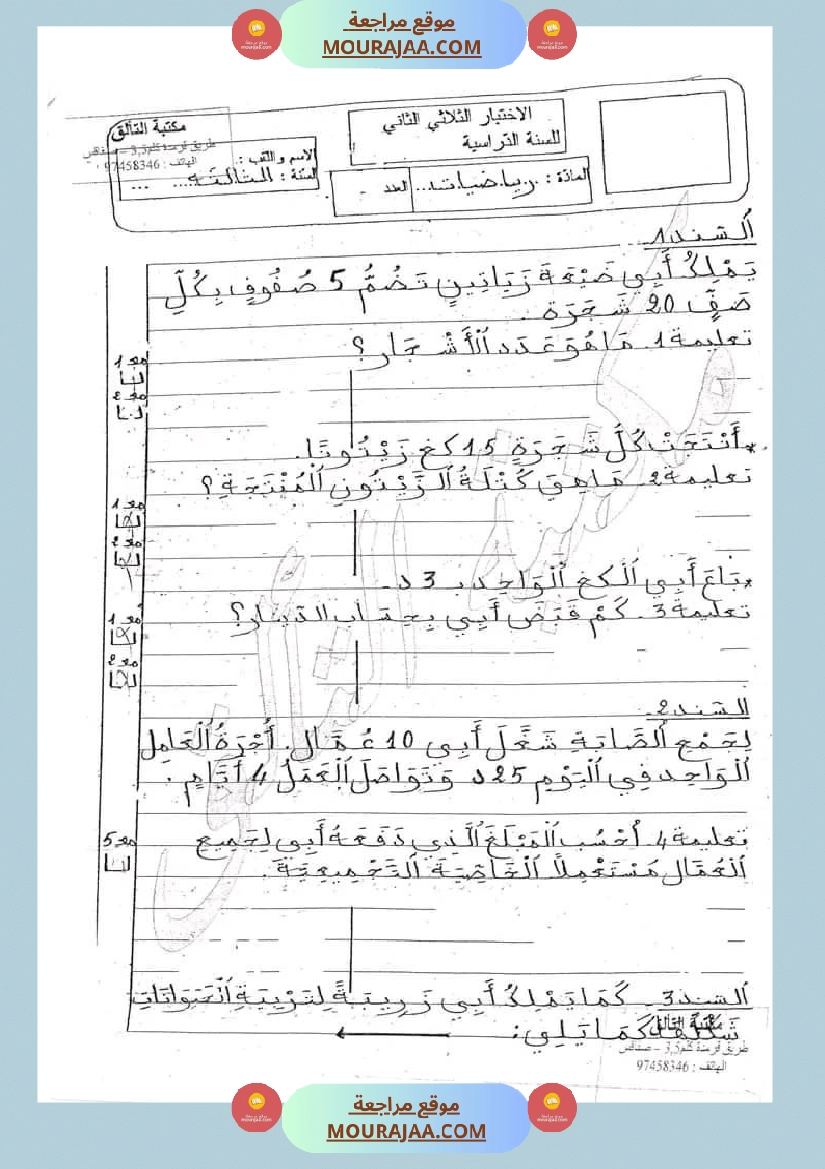 موقع مراجعة
MOURAJAA.COM
مكتبة التألق
طريق قرمدة كلم 3,5 - صفاقس
الهاتف : 97458346
الاختبار الثلاثي الثاني
للسنة الدراسية
الاسم و اللقب :
السنة : الثالثة
المادة : رياضيات
العدد
السند 1
يَمْلِكُ أَبِي ضَيْعَةَ زَيَاتِينٍ تَضُمُّ 5 صُفُوفٍ بِكُلِّ
صَفٍّ 20 شَجَرَة .
تعليمة 1. مَا هُوَ عَدَدُ ٱلْأَشْجَارِ؟
مع 1
مع 2
* أَنْتَجَتْ كُلُّ شَجَرَةٍ 15 كغ زَيْتُونًا.
تعليمة 2. مَا هِيَ كُتْلَةُ ٱلزَّيْتُونِ ٱلْمُنْتَجَةِ؟
مع 1
مع 2
* بَاعَ أَبِي ٱلْكغ ٱلْوَاحِدِ بـ 3 د.
تعليمة 3. كَمْ قَبَضَ أَبِي بِحِسَابِ الدّينار؟
مع 1
مع 2
السند 2.
لِجَمْعِ ٱلصَّابَةِ شَغَّلَ أَبِي 10 عُمَّالٍ. أُجْرَةُ ٱلْعَامِلِ
ٱلْوَاحِدِ فِي ٱلْيَوْمِ 25 د وَتَوَاصَلَ ٱلْعَمَلُ 4 أَيَّامٍ .
تعليمة 4. أَحْسُبُ ٱلْمَبْلَغَ ٱلَّذِي دَفَعَهُ أَبِي لِجَمِيعِ
ٱلْعُمَّالِ مُسْتَعْمِلاً ٱلْخَاصِّيَةَ ٱلتَّجْمِيعِيَّةَ.
مع 5
ٱلسند 3. كَمَا يَمْلِكُ أَبِي زَرِيبَةً لِتَرْبِيَةِ ٱلْحَيَوَانَاتِ
شَكْلُهَا كَمَا يَلِي:
مكتبة التألق
طريق قرمدة كلم 3,5 - صفاقس
الهاتف : 97458346
موقع مراجعة
MOURAJAA.COM